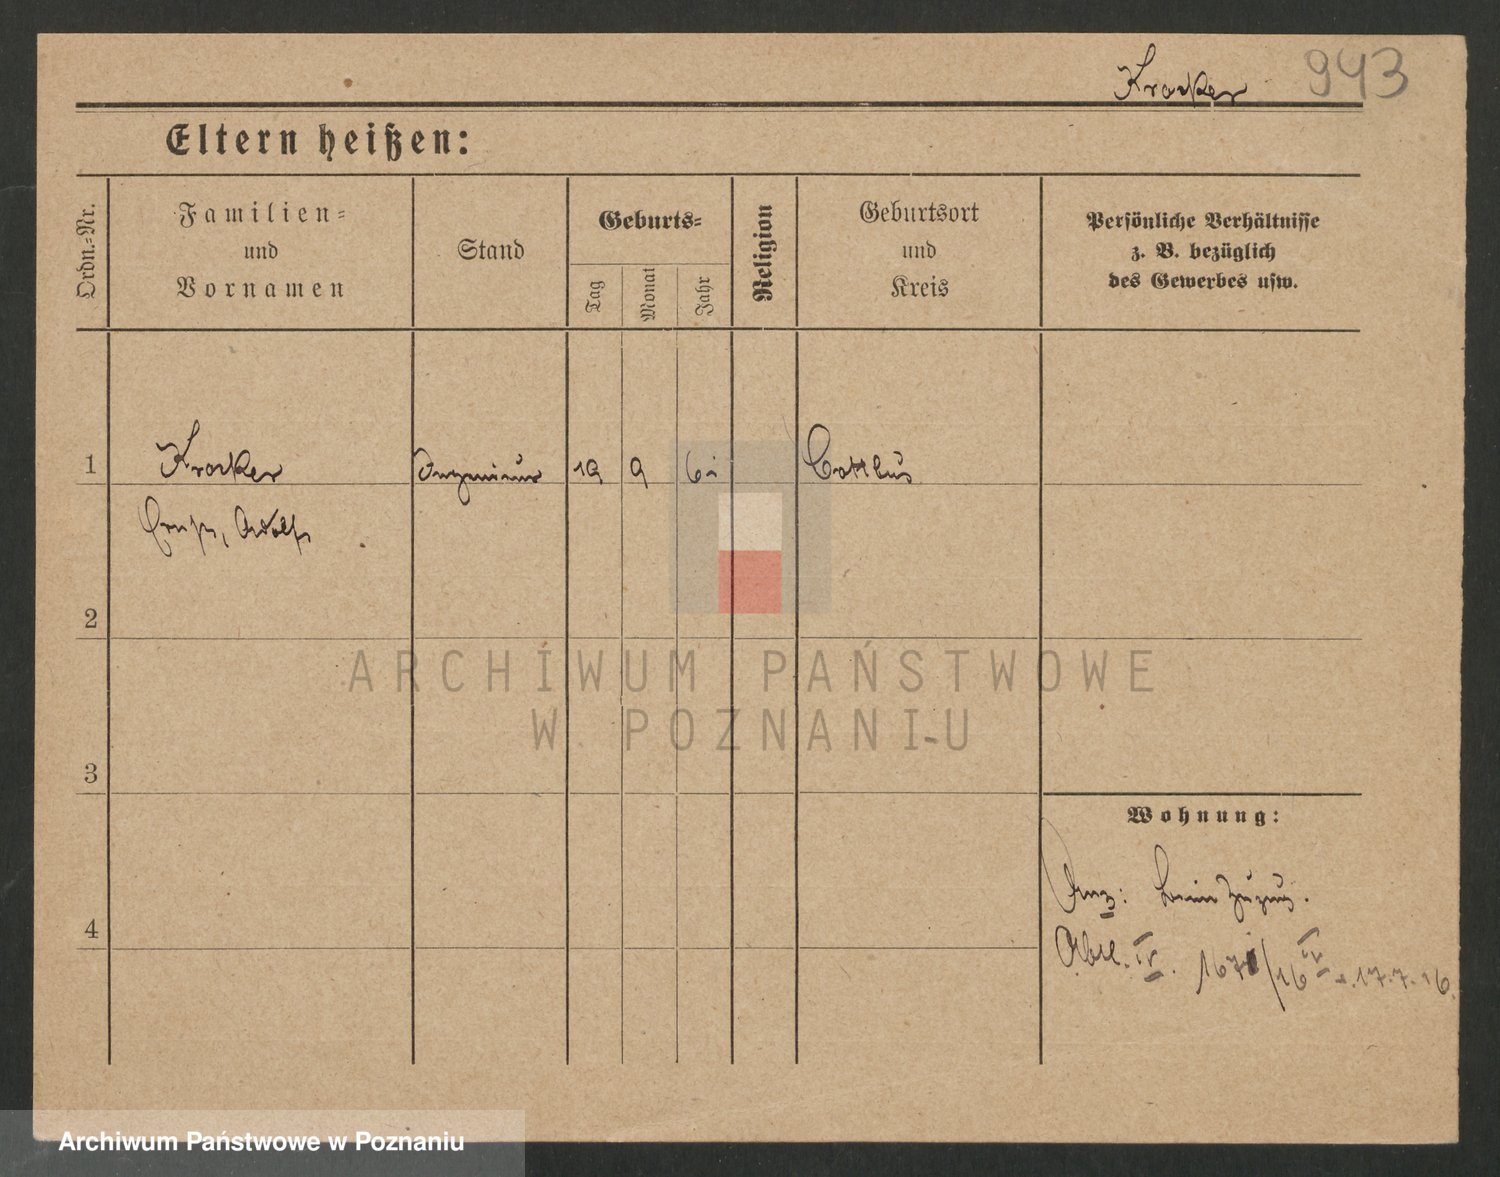 Krocker 943
Eltern heißen:
Ordn.-Nr.
Familien-
und
Vornamen
Stand
Geburts-
Tag
Monat
Jahr
Religion
Geburtsort
und
Kreis
Persönliche Verhältnisse
z. B. bezüglich
des Gewerbes usw.
1 Krocker Ingenieur 19 9 Cottbus
Ernst, Adolf
2
ARCHIWUM PAŃSTWOWE
W POZNANIU
3
Wohnung:
kein Zuzug.
4
Abtl. IV. 17.7.16.
Archiwum Państwowe w Poznaniu